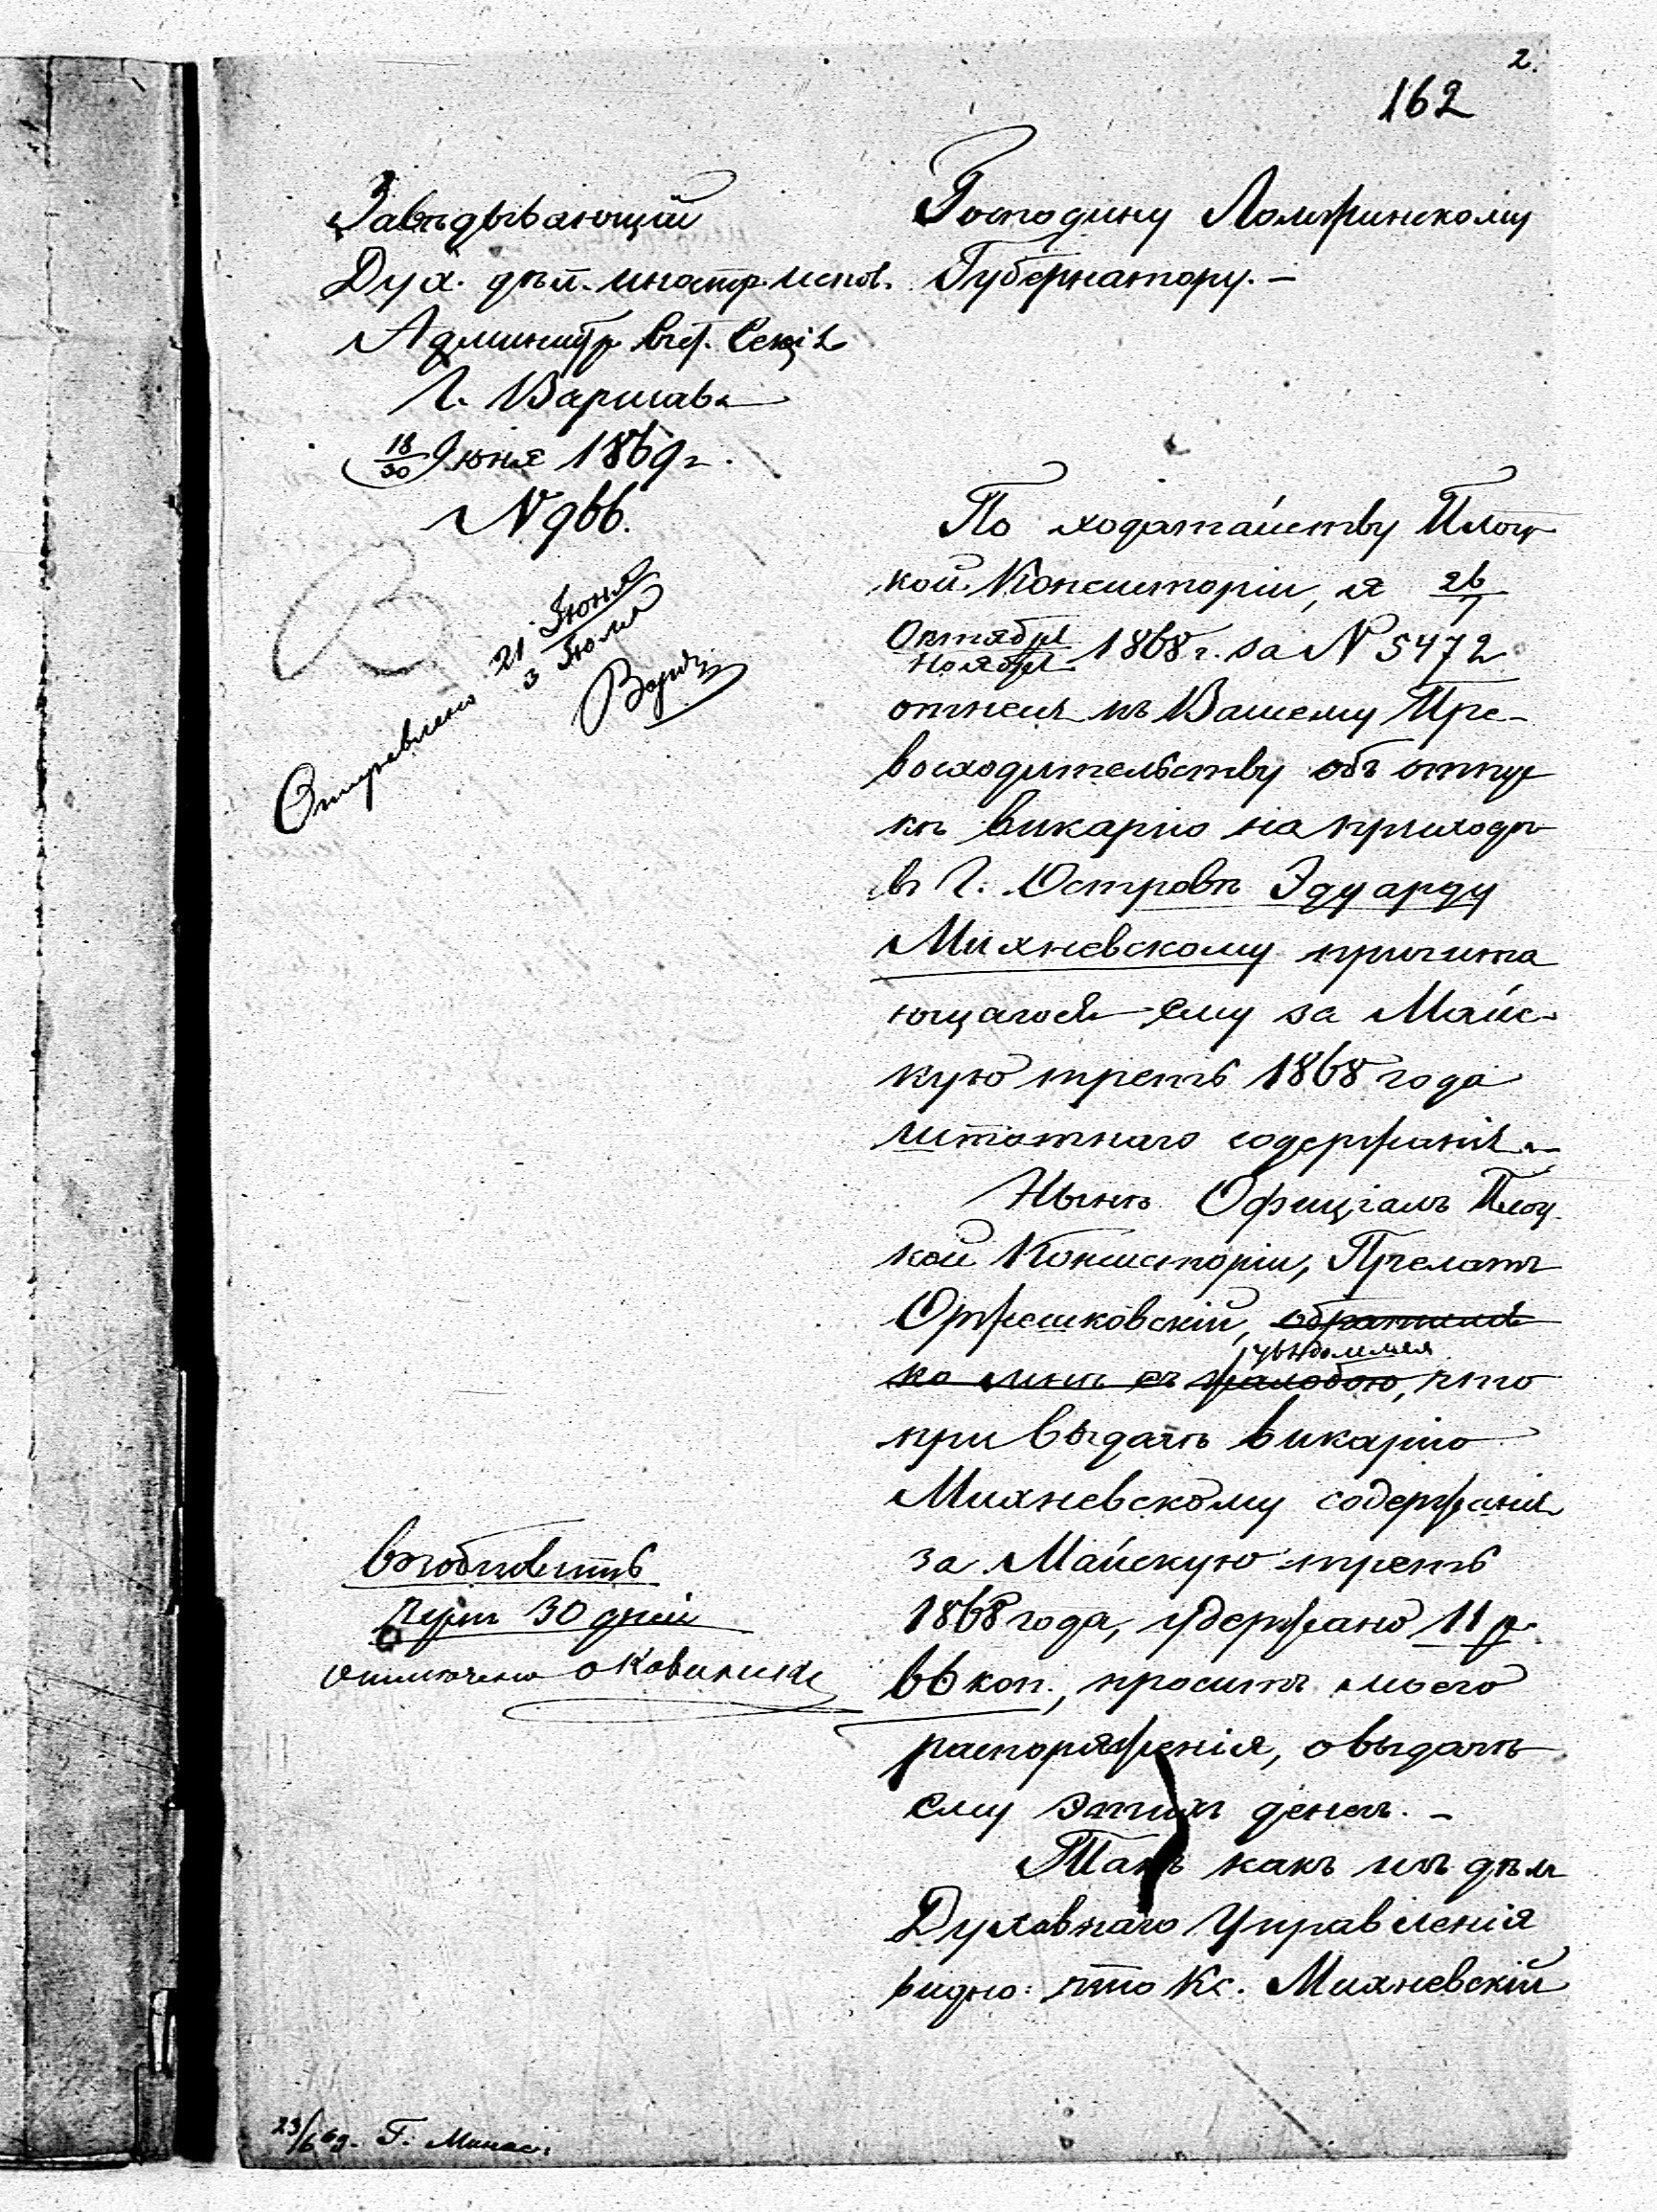 2.
162
Завѣдывающій
Дух. дѣл. иностр. испов.
Администр. Секція
Г. Варшава
18/30 Іюня 1869 г.
№ 966.
Отправлено 21 Іюня
3 Іюля
Господину Ломжинскому
Губернатору. –
По ходатайству Плоц
кой Консисторіи, я 26/7
Октября/Ноября 1868 г. за № 5472
отнесся къ Вашему Пре-
восходительству объ отпус
кѣ викарію на приходѣ
въ Г. Островѣ Эдуарду
Михневскому причита
ющагося ему за Майс-
кую треть 1868 года
штатнаго содержанія. –
Нынѣ Официалъ Плоц
кой Консисторіи, Прелатъ
Оржешковскій, обратился
увѣдомляя
ко мнѣ съ жалобою, что
при выдачѣ викарію
Михневскому содержанія
за Майскую треть
1868 года, удержано 11 р.
66 коп., проситъ моего
распоряженія, о выдачѣ
ему этихъ денегъ. –
Такъ какъ изъ дѣлъ
Духовнаго Управленія
видно: что Кс. Михневскій
возобновить
чрезъ 30 дней
23/6 69. Г.